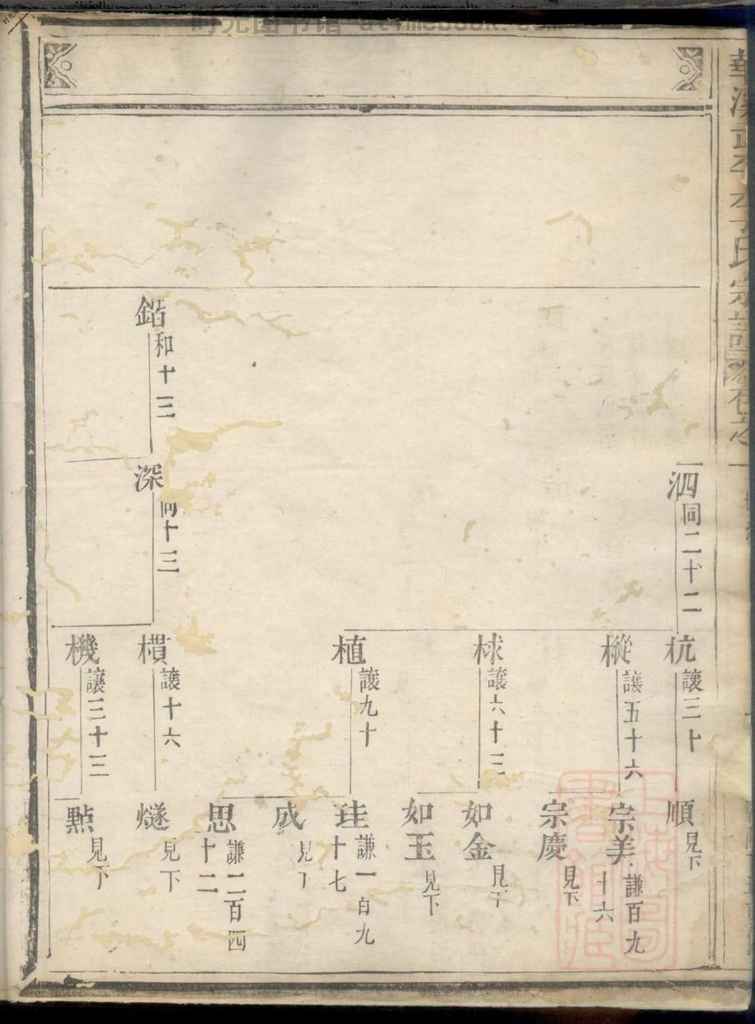 泗同二十二
杭讓三十
樅讓五十六
梂讓六十三
植讓九十
順見下
宗美謙百九十六
宗慶見下
如金見下
如玉見下
珪謙一百九十七
成見下
思謙二百四十二
鍇和十三
深同十三
横讓十六
機讓三十三
燧見下
點見下